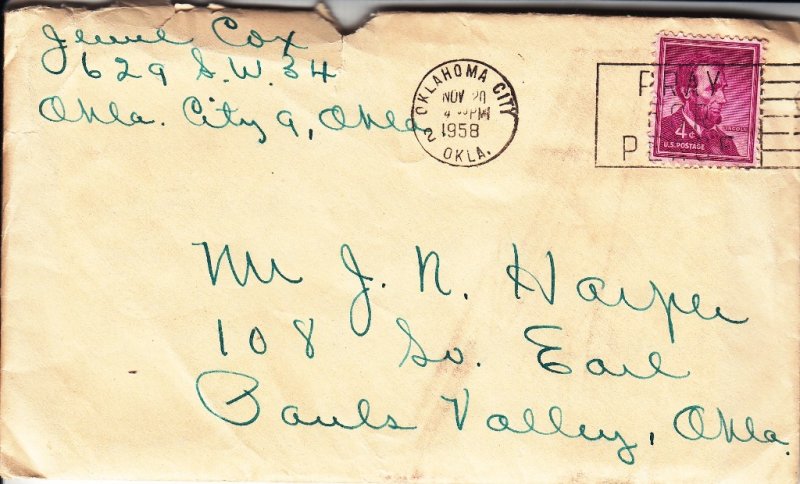 Jewel Cox
629 S.W. 34
Okla. City 9, Okla.
OKLAHOMA CITY
NOV 20
4 PM
1958
2
OKLA.
PRAY
FOR
PEACE
LINCOLN
4¢
U.S. POSTAGE
Mr J. R. Harper
108 So. Earl
Pauls Valley, Okla.